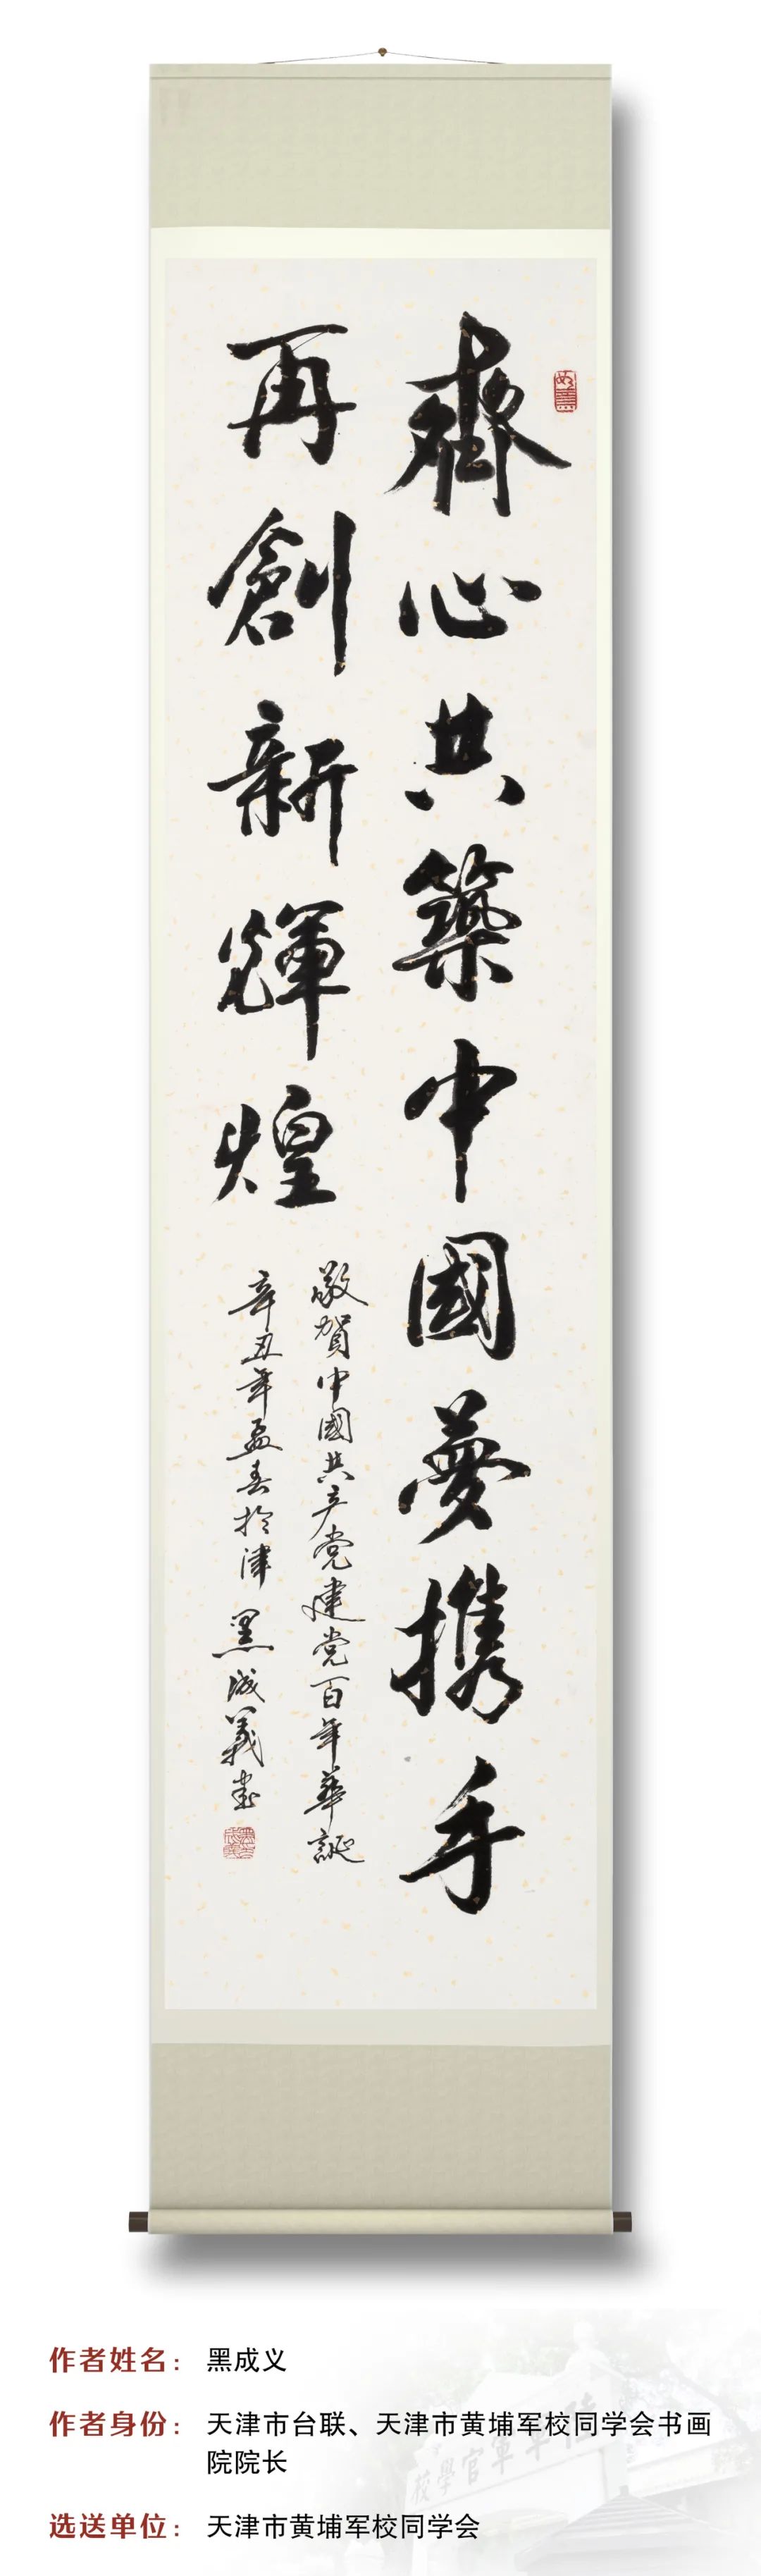 齊心共築中國夢携手
再創新輝煌
敬賀中國共产党建党百年華誕
辛丑年孟春於津 黑成義書
作者姓名： 黑成义
作者身份： 天津市台联、天津市黄埔军校同学会书画
院院长
选送单位： 天津市黄埔军校同学会